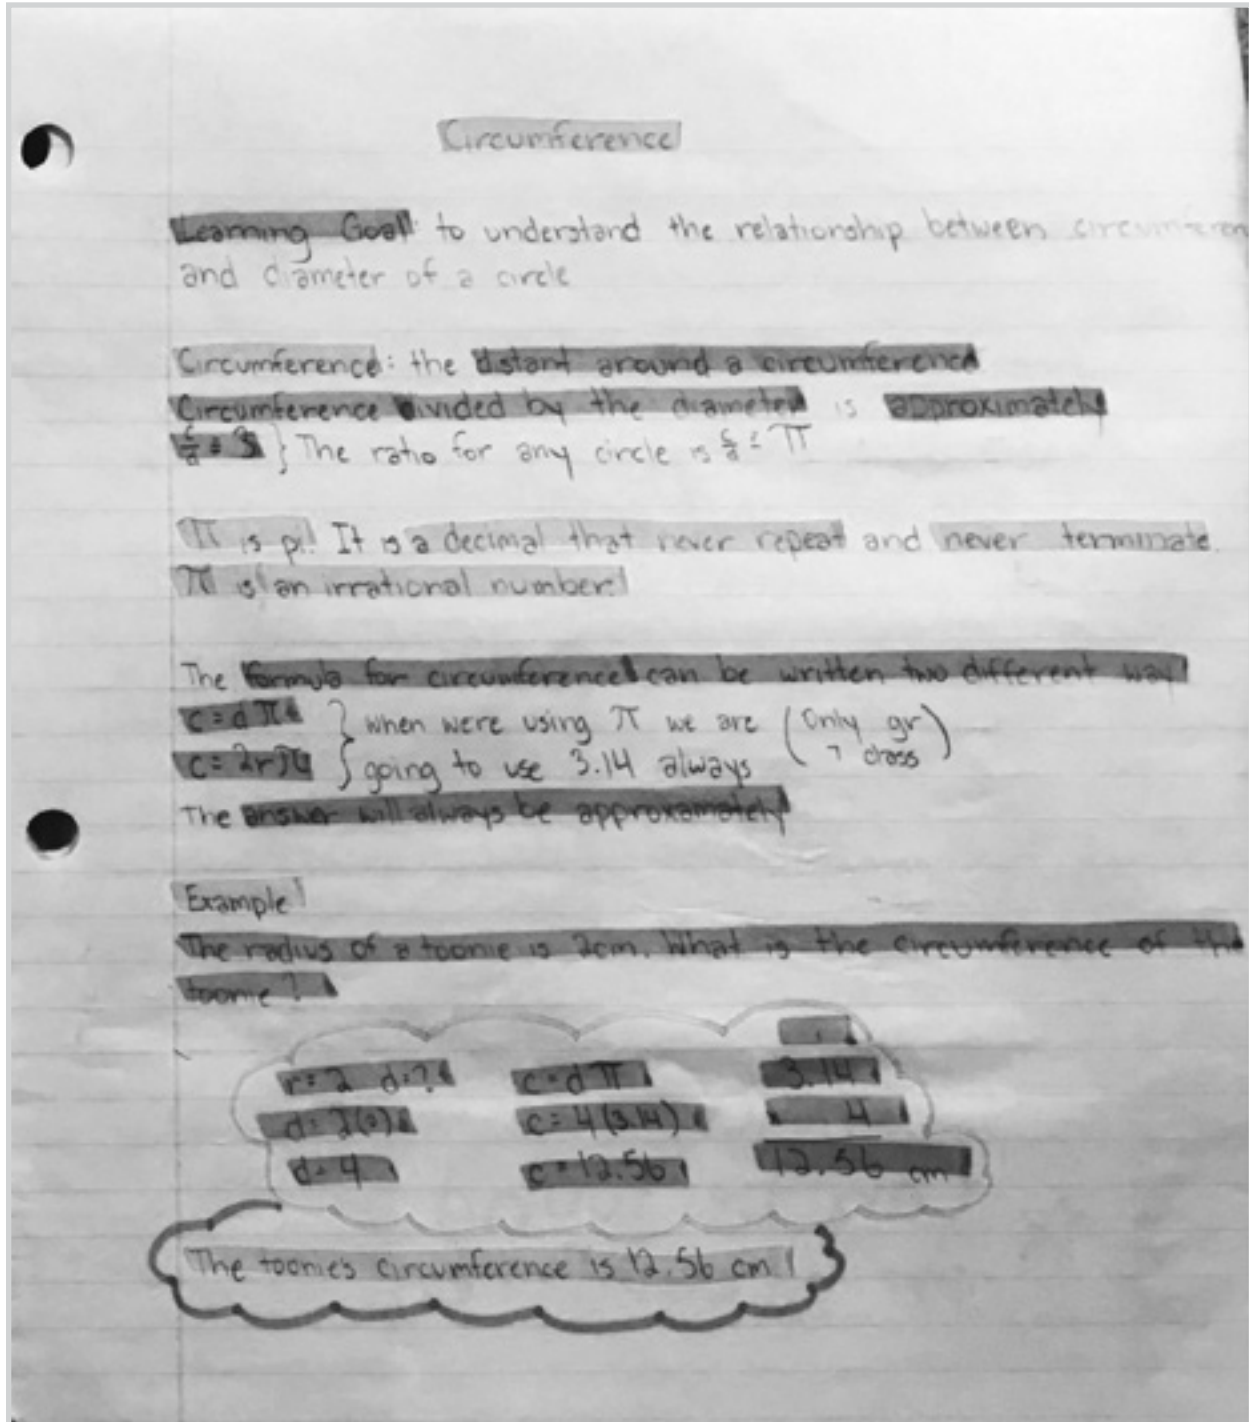 Circumference
Learning Goal: to understand the relationship between circumferen
and diameter of a circle
Circumference: the distant around a circumference
Circumference divided by the diameter is approximately
c/d = 3 } The ratio for any circle is c/d = π
π is pi! It is a decimal that never repeat and never terminate.
π is an irrational number!
The formula for circumference can be written two different way
c = d π } when were using π we are (Only gr
c = 2rπ } going to use 3.14 always 7 class)
The answer will always be approxamately
Example
The radius of a toonie is 2cm. What is the circumference of the
toonie?
1
r = 2 d = ? c = d π 3.14
d = 2(2) c = 4(3.14) 4
d = 4 c = 12.56 12.56 cm
The toonie's circumference is 12.56 cm!